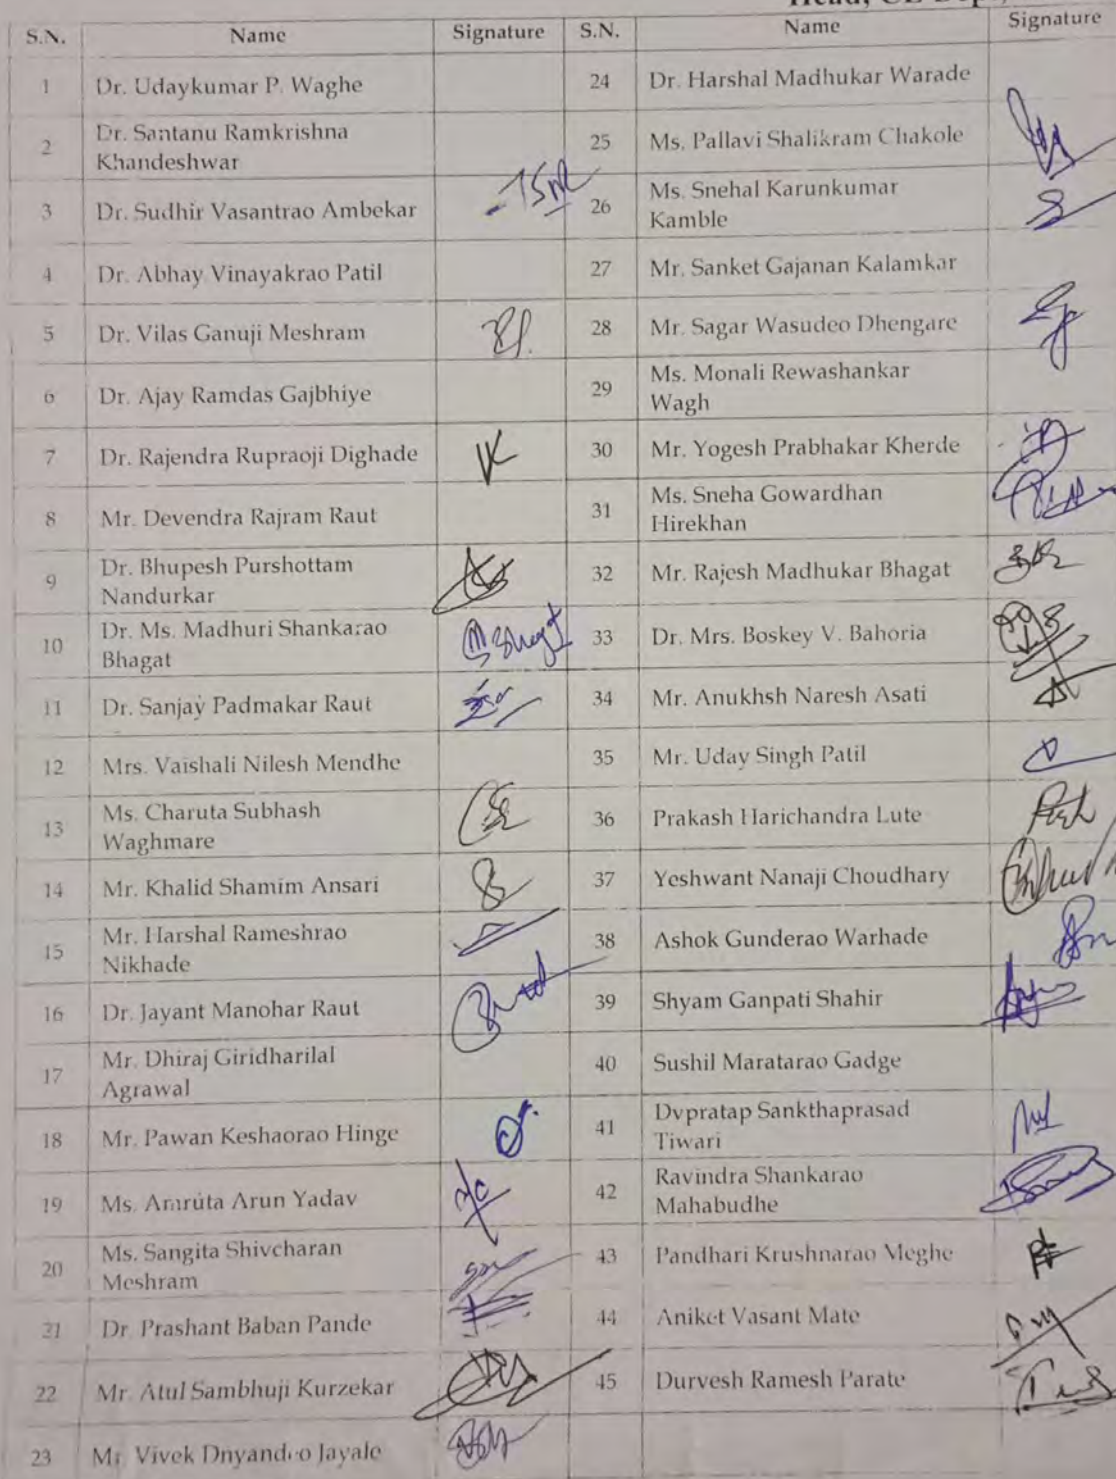 Head, CE Dept,
S.N. Name Signature S.N. Name Signature
1 Dr. Udaykumar P. Waghe 24 Dr. Harshal Madhukar Warade
2 Dr. Santanu Ramkrishna Khandeshwar 25 Ms. Pallavi Shalikram Chakole
3 Dr. Sudhir Vasantrao Ambekar 26 Ms. Snehal Karunkumar Kamble
4 Dr. Abhay Vinayakrao Patil 27 Mr. Sanket Gajanan Kalamkar
5 Dr. Vilas Ganuji Meshram 28 Mr. Sagar Wasudeo Dhengare
6 Dr. Ajay Ramdas Gajbhiye 29 Ms. Monali Rewashankar Wagh
7 Dr. Rajendra Rupraoji Dighade 30 Mr. Yogesh Prabhakar Kherde
8 Mr. Devendra Rajram Raut 31 Ms. Sneha Gowardhan Hirekhan
9 Dr. Bhupesh Purshottam Nandurkar 32 Mr. Rajesh Madhukar Bhagat
10 Dr. Ms. Madhuri Shankarao Bhagat 33 Dr. Mrs. Boskey V. Bahoria
11 Dr. Sanjay Padmakar Raut 34 Mr. Anukhsh Naresh Asati
12 Mrs. Vaishali Nilesh Mendhe 35 Mr. Uday Singh Patil
13 Ms. Charuta Subhash Waghmare 36 Prakash Harichandra Lute
14 Mr. Khalid Shamim Ansari 37 Yeshwant Nanaji Choudhary
15 Mr. Harshal Rameshrao Nikhade 38 Ashok Gunderao Warhade
16 Dr. Jayant Manohar Raut 39 Shyam Ganpati Shahir
17 Mr. Dhiraj Giridharilal Agrawal 40 Sushil Maratarao Gadge
18 Mr. Pawan Keshaorao Hinge 41 Dvpratap Sankthaprasad Tiwari
19 Ms. Amruta Arun Yadav 42 Ravindra Shankarao Mahabudhe
20 Ms. Sangita Shivcharan Meshram 43 Pandhari Krushnarao Meghe
21 Dr. Prashant Baban Pande 44 Aniket Vasant Mate
22 Mr. Atul Sambhuji Kurzekar 45 Durvesh Ramesh Parate
23 Mr. Vivek Dnyandeo Jayale